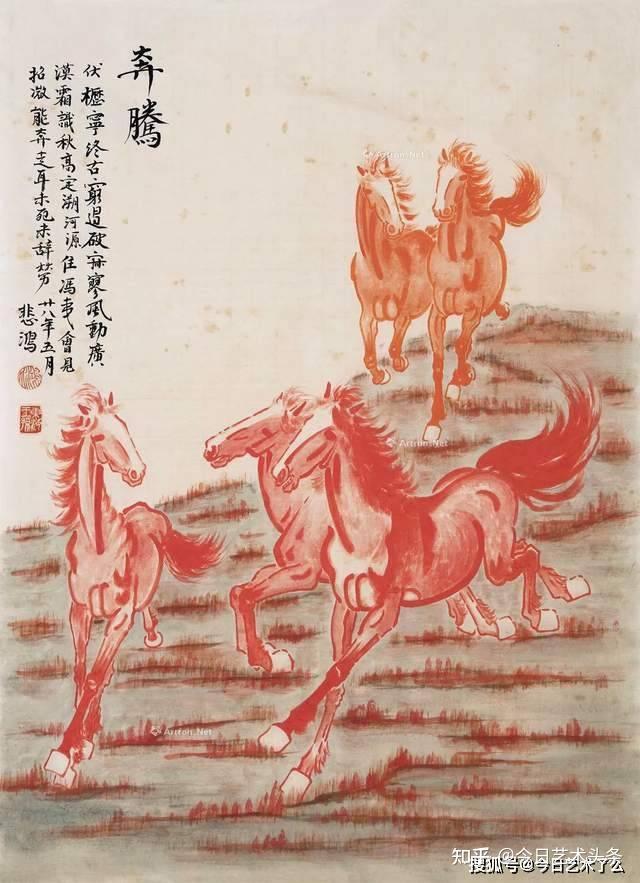 奔騰
伏櫪寧終古窮追破寂寥風動廣
漠霜識秋高定溯河源住馮夷會見
招微能奔走耳未死未辭勞 廿八年五月
悲鴻
Artron.Net
Artron.Net
Artron.Net
知乎 @今日艺术头条
搜狐号@今日艺术了么